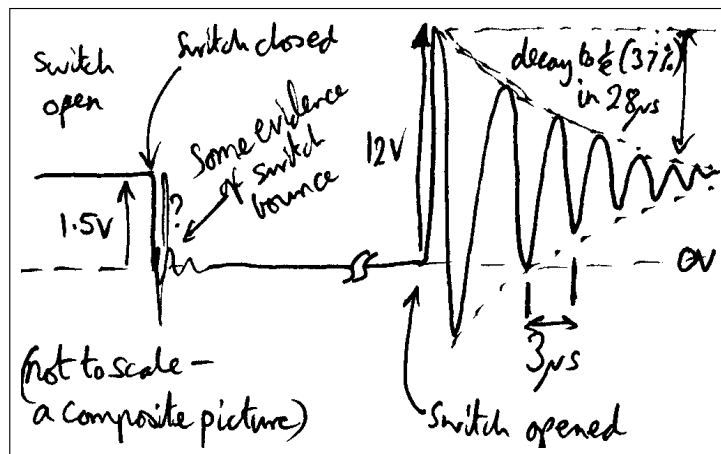 Switch closed
Switch
open
Some evidence
of switch
bounce
?
1.5V
12V
decay to 1/e (37%)
in 28μs
0V
3μs
(not to scale –
a composite picture)
Switch opened